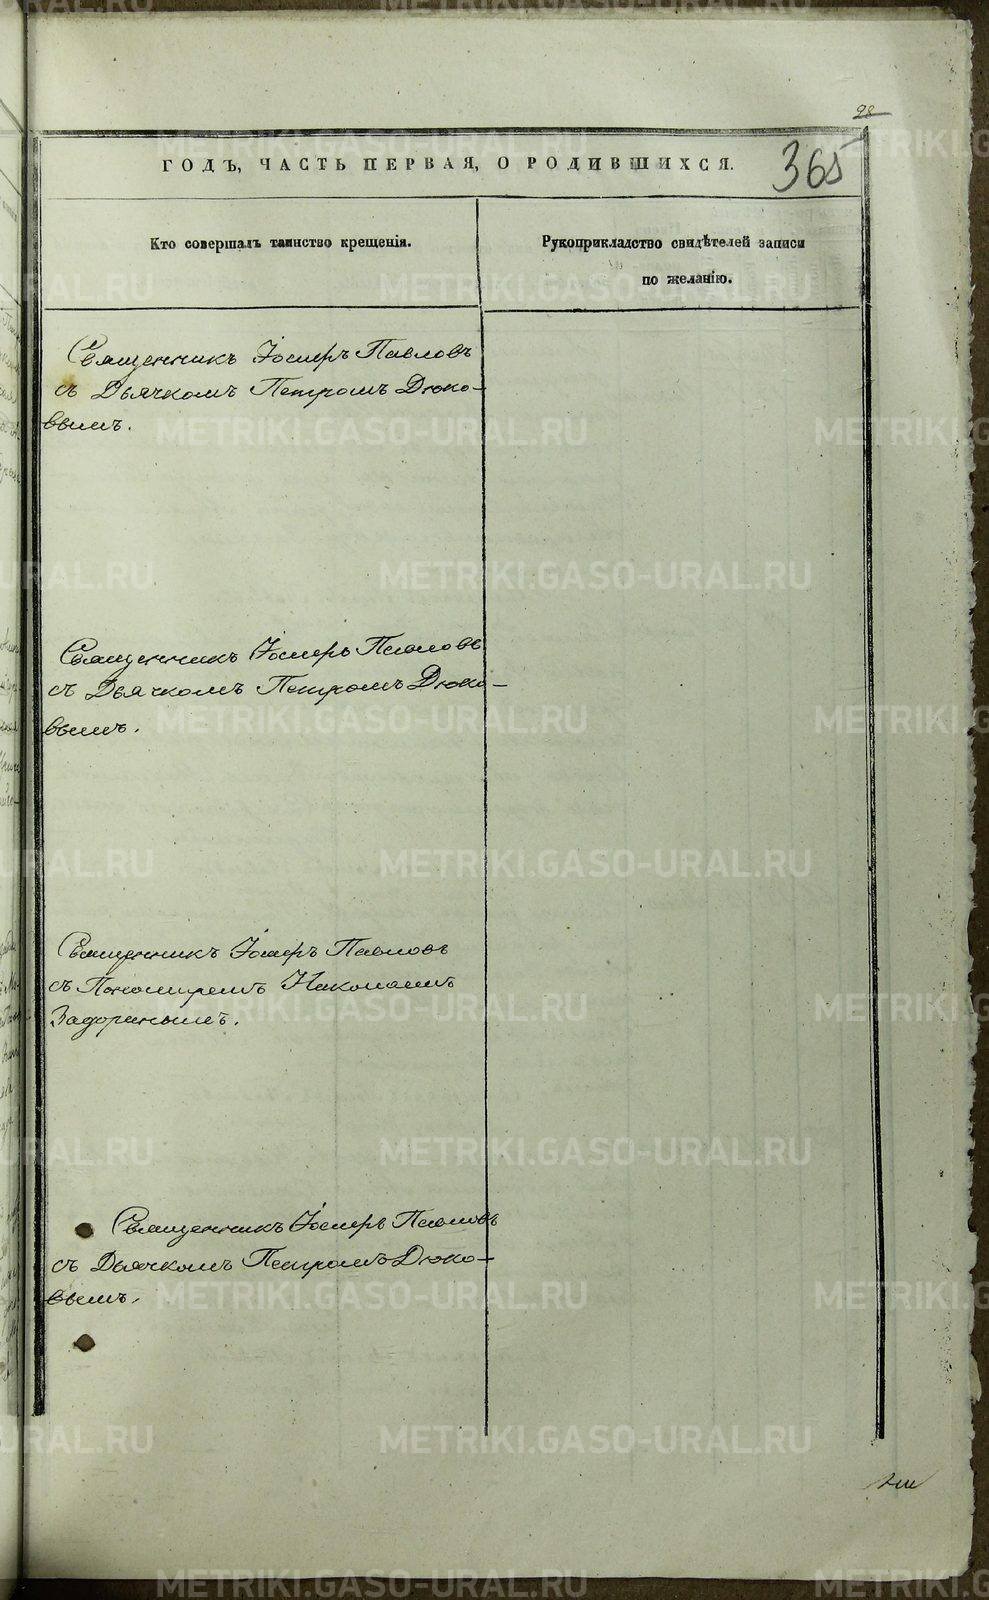 28
ГОДЪ, ЧАСТЬ ПЕРВАЯ, О РОДИВШИХСЯ.
365
Кто совершалъ таинство крещенія.
Рукоприкладство свидѣтелей записи
по желанію.
Священникъ Іосифъ Павловъ
съ Дьячкомъ Петромъ Дюко-
вымъ.
Священникъ Іосифъ Павловъ
съ Дьячкомъ Петромъ Дюко-
вымъ.
Священникъ Іосифъ Павловъ
съ Пономаремъ Николаемъ
Задоринымъ.
Священникъ Іосифъ Павловъ
съ Дьячкомъ Петромъ Дюко-
вымъ.
METRIKI.GASO-URAL.RU